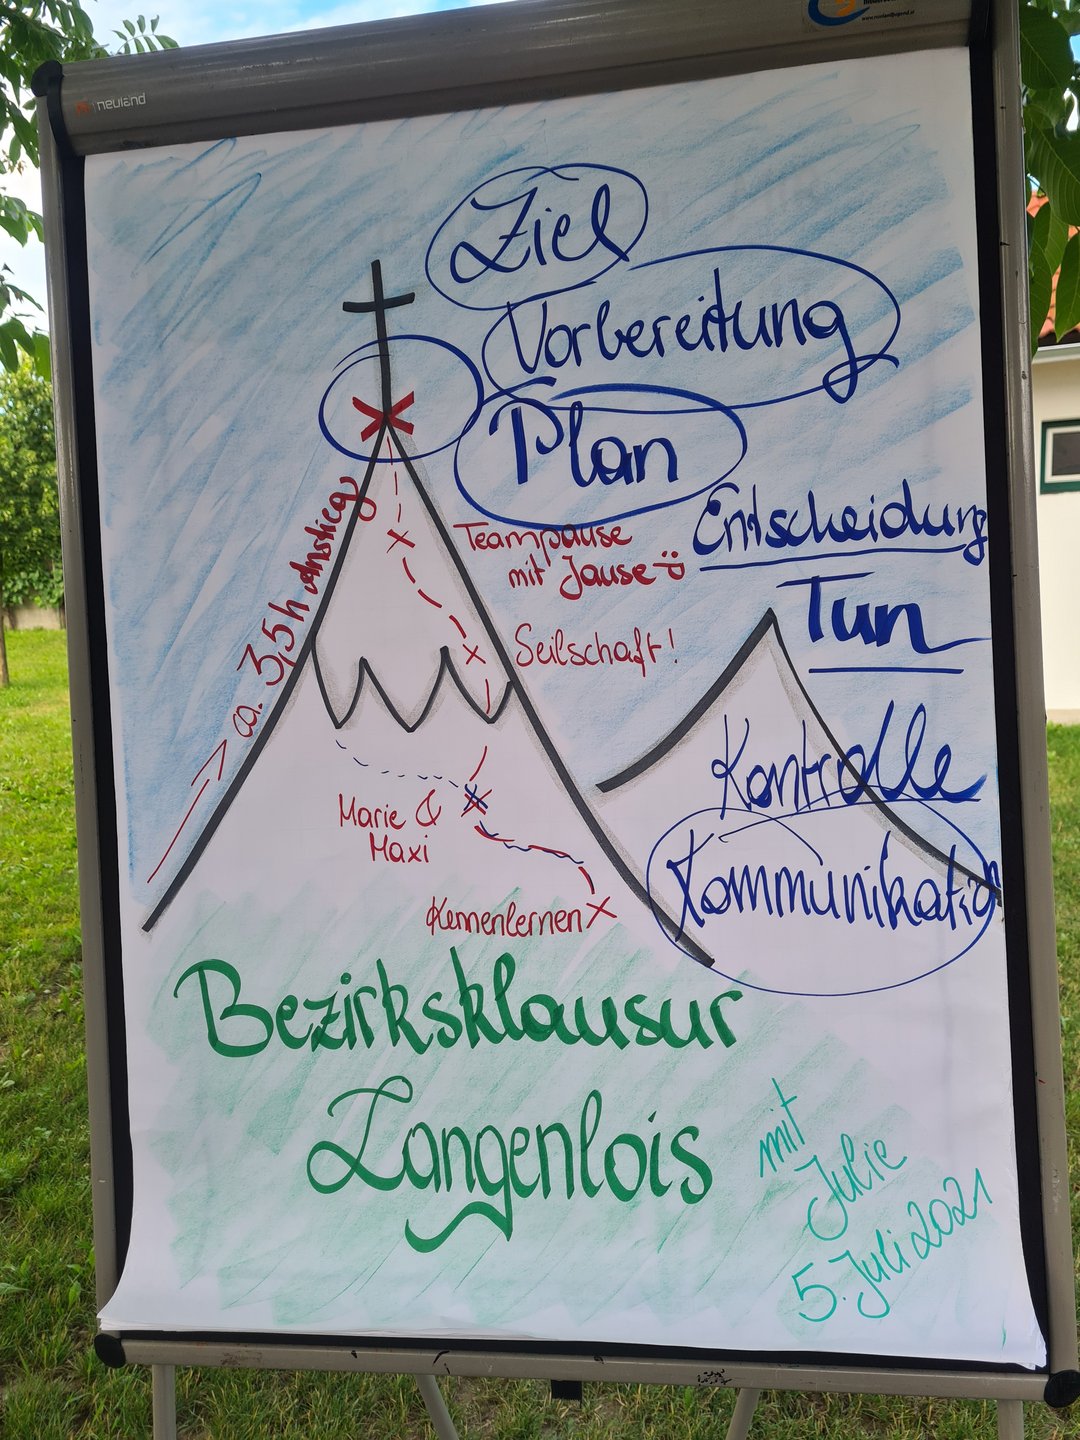 neuland
www.noelandjugend.at
Ziel
Vorbereitung
Plan
Entscheidung
Tun
Kontrolle
Kommunikation
ca. 3,5h Anstieg
Teampause
mit Jause
Seilschaft!
Marie &
Maxi
Kennenlernen
Bezirksklausur
Langenlois
mit
Julie
5. Juli 2021